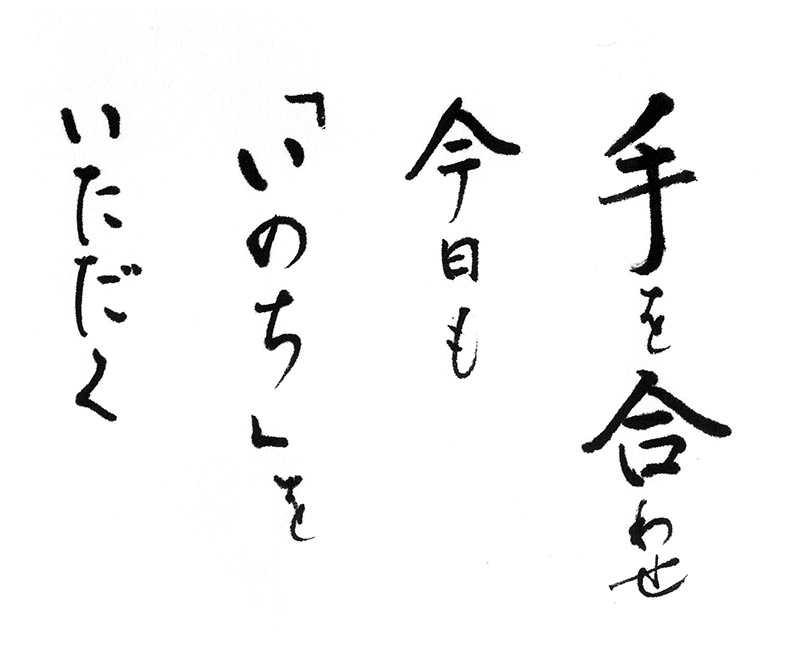 手を合わせ
今日も
「いのち」を
いただく